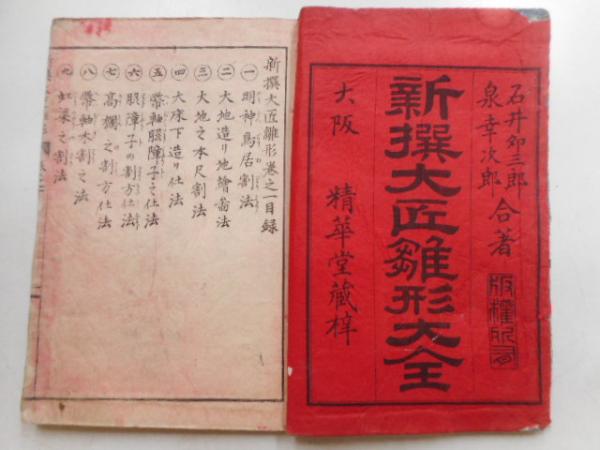 石井卯三郎
泉幸次郎
合著
版權所有
新撰大匠雛形大全
大阪 精華堂藏梓
新撰大匠雛形卷之一目録
一 明神鳥居割法
二 大地造り地繪圖法
三 大地之本尺割法
四 大床下造り仕法
五 幣軸臆障子之仕法
六 臆障子の割方仕法
七 高欄之割方仕法
八 幣軸大割之法
九 虹梁之割法